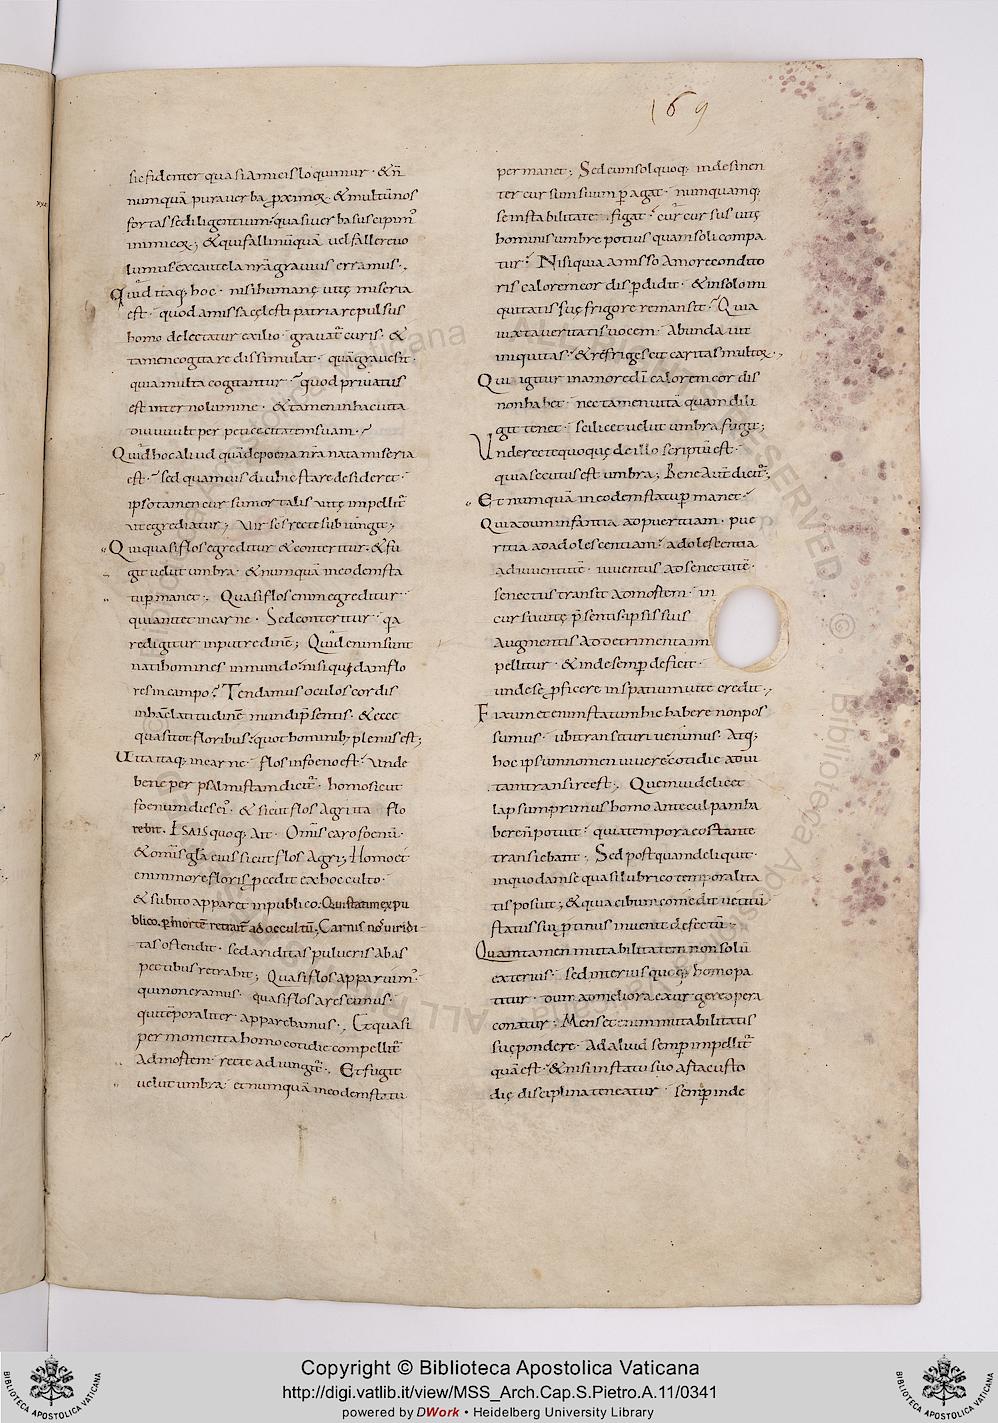 169
sic fidenter quasi amicis loquimur · & n̄
numquā pura verba proximorum · & multū nos
fortasse diligentium· quasi verba suscipim᾽
inimicorum; & qui falli nūquā vel fallere vo
lumus ex cautela nr̄a gravius erramus·,
Quid itaq; hoc · nisi humanę vitę miseria
est · quod amissa cęlesti patria repulsus
homo delectatur exilio· gravat᾽ curis · &
tamen cogitare dissimulat· quā grave sit ·
quia multa cogitantur · quod privatus
est interno lumine · & tamen in hac vita
diu vult perpeti cecitatem suam ·
Quid hoc aliud quā de poena nr̄a nata miseria
est · sed quamvis diu hic stare desideret ·
ipso tamen cursu mortalis vitę impellit᾽
ut egrediatur; Aut ses recte subiungit;
Qui quasi flos egreditur & conteritur · & fu
git velut umbra · & numquā in eodem sta
tu pmanet·, Quasi flos enim egreditur ·
quia nitet in carne · Sed conteritur · qa
redigitur in putredinē; Quid enim sunt
nati homines in mundo· nisi quidam flo
res in campo? Tendamus oculos cordis
in hanc latitudinē mundi p̄sentis · & ecce
quasi tot floribus· quot hominib; plenus est;
Vita itaq; in carne · flos in foeno est· Unde
bene per psalmistam dicit᾽· homo sicut
foenum dies ei᾽· & sicut flos agri ita flo
rebit · Isaias quoq; ait · Omīs caro foenū·
& omīs gla eius sicut flos agri; Homo et
enim more floris pcedit ex hoc culto·
& subito apparet in publico· Qui statim ex pu
blico· p mortē retrait᾽ ad occultū; Carnis nos viridi
tas ostendit · sed ariditas pulveris ab as
pectibus retrahit; Quasi flos apparuim᾽·
qui non eramus· quasi flos arescimus·
qui tēporaliter apparebamus·, Et quasi
per momenta homo cotidie compellit᾽
ad mortem· recte adiungit᾽·, Et fugit
velut umbra· et numquā in eodem statu
permanet; Sed cum sol quoq; indesinen
ter cursum suum pagat· numquamq;
se in stabilitate figat · cur cursus vitę
hominis umbre potius quam soli compa
tur · Nisi quia amisso amore condito
ris calorem cordis pdidit · & in sola ini
quitatis suę frigore remansit · Quia
iuxta veritatis vocem· Abundavit
iniquitas· & refrigescit caritas multorum·,
Qui igitur in amore dī calorem cordis
non habet· nec tamen vitā quam dili
git tenet· scilicet velut umbra fugit;
Unde recte quoque de illo scriptū est·
quia secutus est umbra; Bene aut̄ dicit᾽·,
Et numquā in eodem statu pmanet·
Quia dum infantia ad pueritiam· pue
ritia ad adolescentiam· adolescentia
ad iuventutē· iuventus ad senectutē·
senectus transit ad mortem· in
cursu vitę p̄sentis· ipsis suis
augmentis ad detrimenta im
pellitur · & inde semp deficit·
unde se pficere in spatium vite credit·,
Fixum etenim statum hic habere non pos
sumus· ubi transituri venimus· Atq;
hoc ipsum nomen vivere· cotidie a vi
ta transire est·, Quem videlicet
lapsum primus homo ante culpam ha
bere n̄ potuit· quia tempora eo stante
transiebant·, Sed postquam deliquit·
in quodam se quasi lubrico temporalita
tis posuit; & quia cibum comedit vetitū
status sui p̄tinus invenit defectū·
Quam tamen mutabilitatem non solū
exterius· sed interius quoq; homo pa
titur· dum ad meliora exurgere opera
conatur; Mens etenim mutabilitatis
suę pondere· Ad aliud semp impellit᾽
quā est· & nisi in statu suo arta custo
dię disciplina teneatur· semp in de